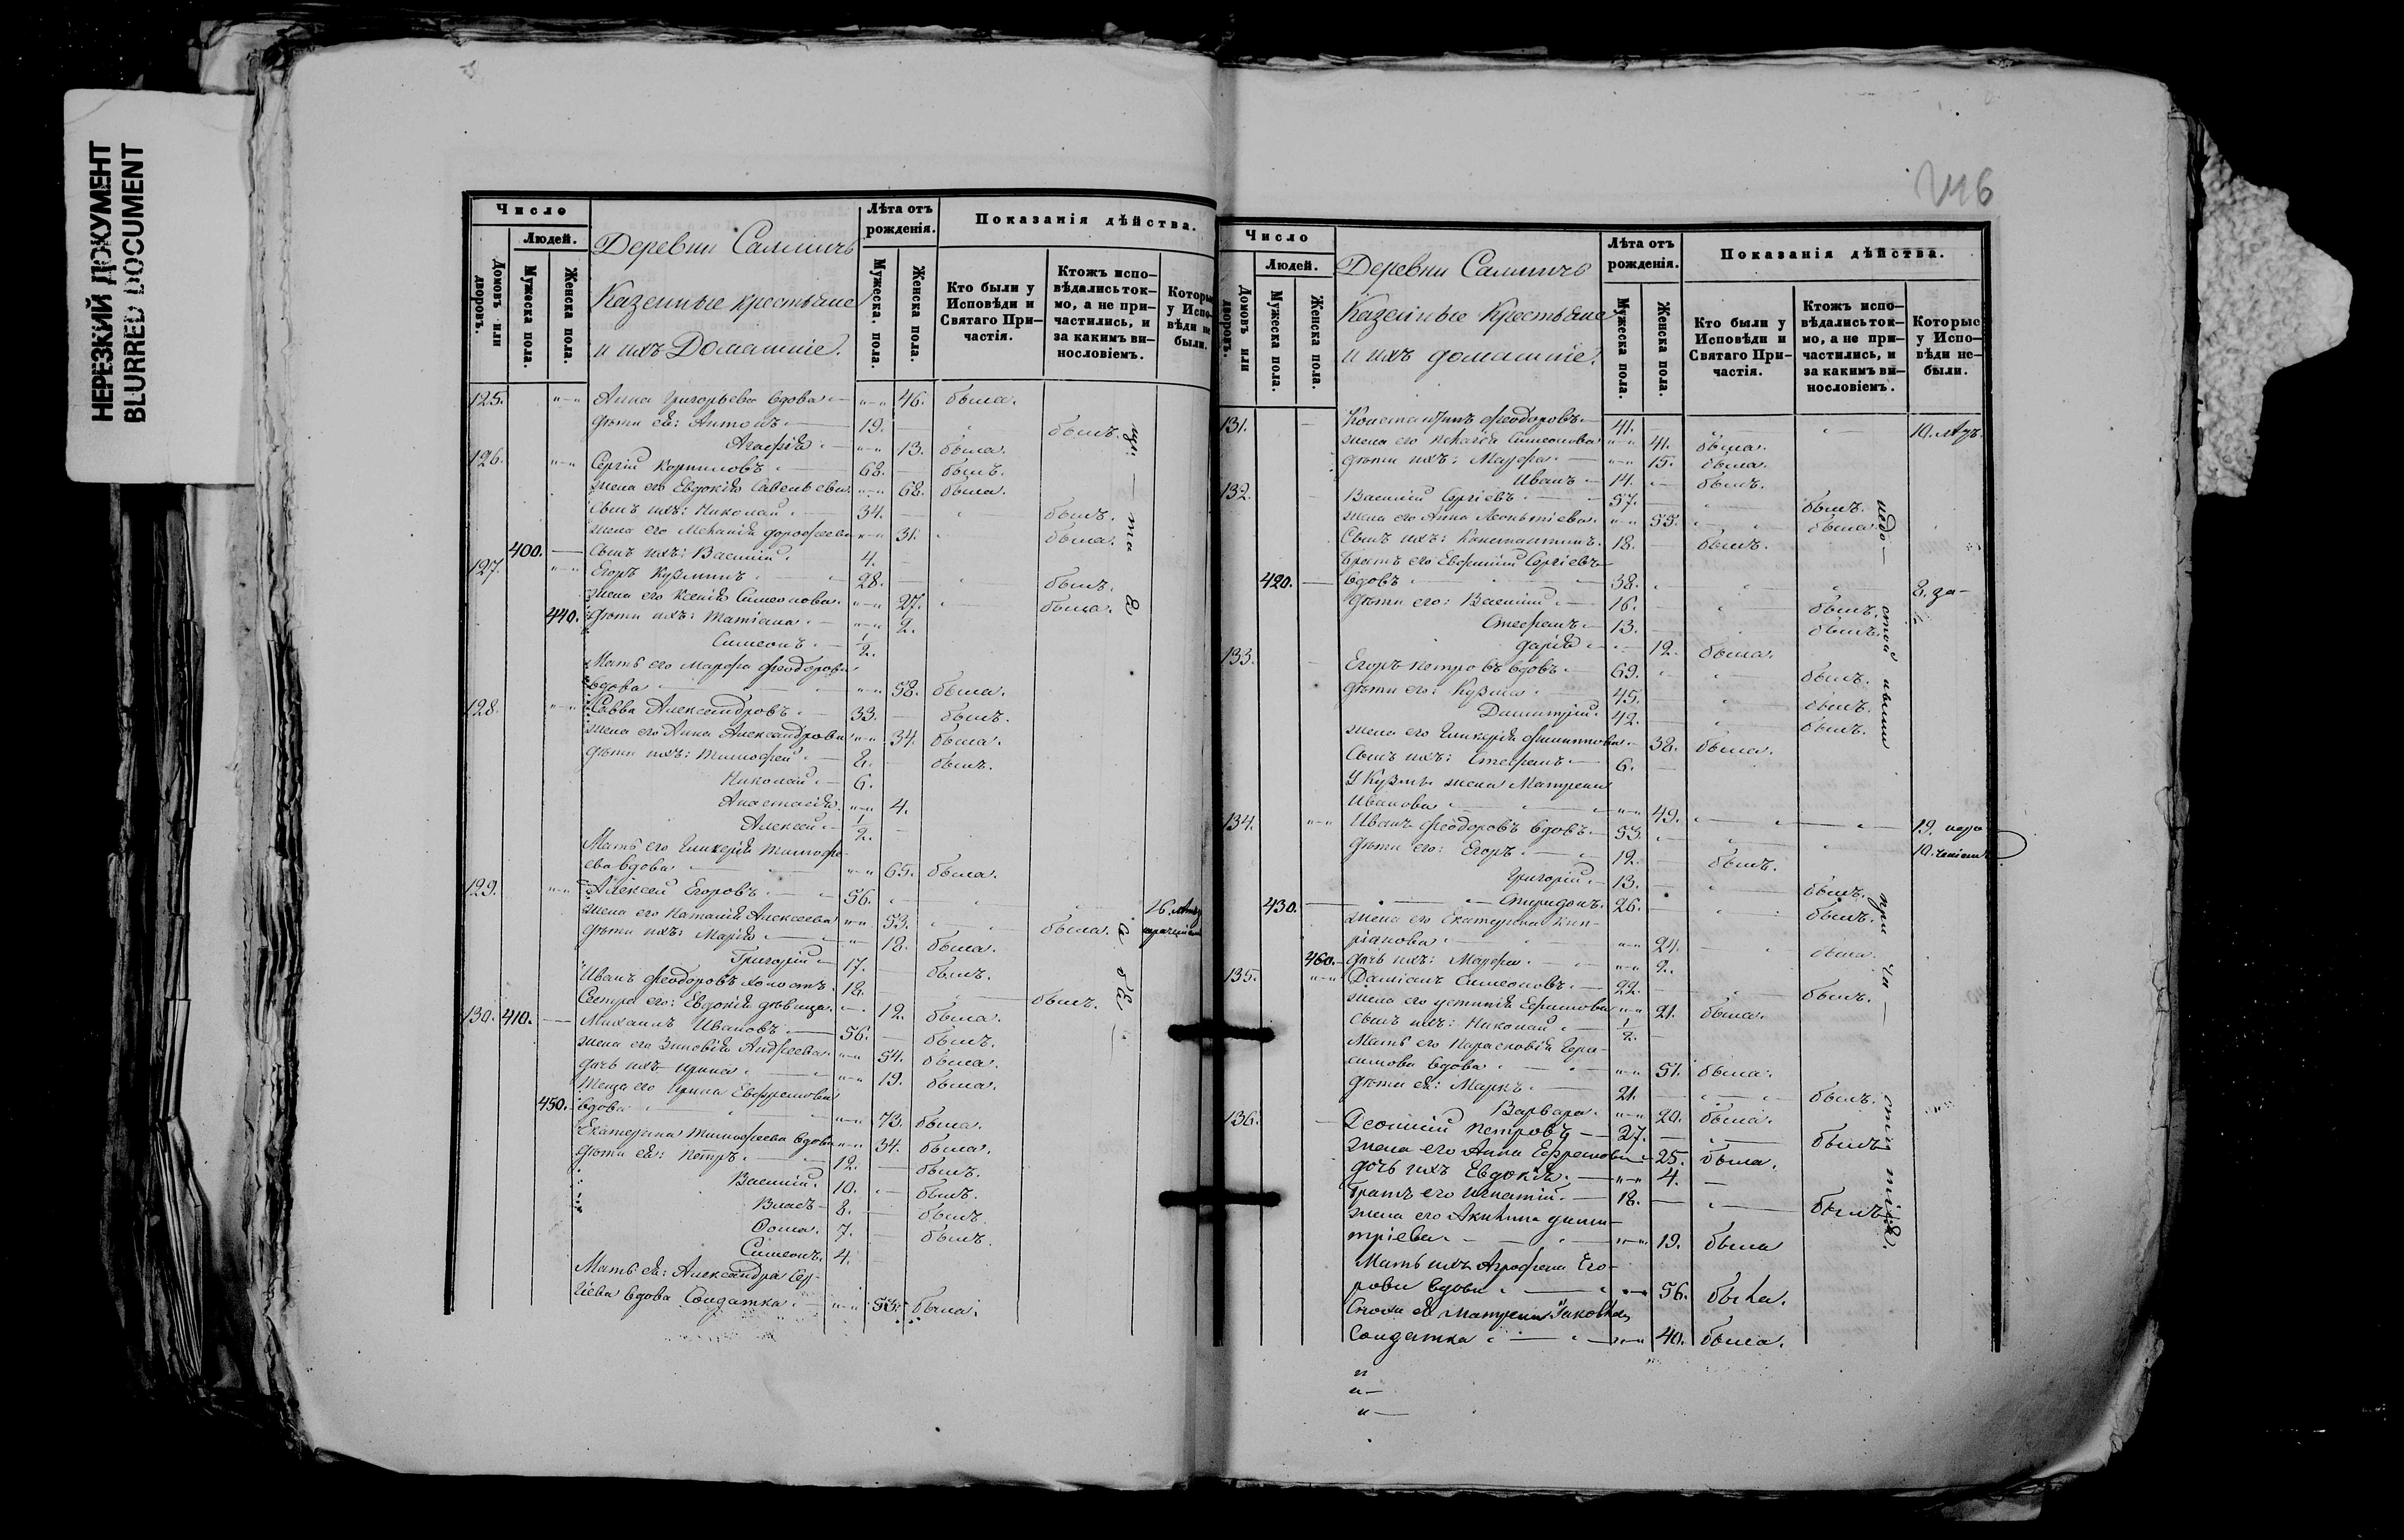 НЕРЕЗКИЙ ДОКУМЕНТ
BLURRED DOCUMENT
Число
Людей.
Домовъ или дворовъ.
Мужеска пола.
Женска пола.
Деревни
Казенные крестьяне
и ихъ Домашніе.
Лѣта отъ рожденія.
Мужеска. пола.
Женска пола.
Показанія дѣйства.
Кто были у Исповѣди и Святаго При-частія.
Ктожъ испо-вѣдались ток-мо, а не при-частились, и за какимъ ви-нословіемъ.
Которые у Испо-вѣди не были.
125. Анна Григорьева вдова 46. была.
дѣти ея: Антонъ 19. былъ.
Агафія 13. была.
126. Сергій Корниловъ 68. былъ.
жена его Евдокія Савельева 68. была.
сынъ ихъ: Николай 34. былъ.
жена его Меланія Дорофеева 31. была.
400. Сынъ ихъ: Василій 4.
127. Егоръ Кузминъ 28. былъ.
жена его Ксенія Симеонова 27. была.
440. дѣти ихъ: Татіана 2.
Симеонъ 1/2.
Мать его Марфа Феодорова
вдова 58. была.
128. Савва Александровъ 33. былъ.
жена его Анна Александрова 34. была.
дѣти ихъ: Тимофей 8. былъ.
Николай 6.
Анастасія 4.
Алексей 1/2.
Мать его Гликерія Тимофе-
ева вдова 65. была.
129. Алексей Егоровъ 56. 16. лѣтъ
жена его Наталія Алексеева 53. была.
дѣти ихъ: Марія 18. была.
Григорій 17. былъ.
Иванъ Феодоровъ холостъ 18. былъ.
Сестра его: Евдокія дѣвица 12. была.
130. 410. Михаилъ Ивановъ 56. былъ.
жена его Зиновія Андреева 54. была.
дочь ихъ Ирина 19. была.
Теща его Ирина Ефремова
450. вдова 73. была.
Екатерина Тимофеева вдова 34. была.
дѣти ея: Петръ 12. былъ.
Василій 10. былъ.
Власъ 8. былъ.
Фома 7. былъ.
Симеонъ 4.
Мать ея: Александра Сер-
гіева вдова Солдатка 53. была.
Число
Людей.
Домовъ или дворовъ.
Мужеска пола.
Женска пола.
Деревни
Казенные Крестьяне
и ихъ домашніе.
Лѣта отъ рожденія.
Мужеска пола.
Женска пола.
Показанія дѣйства.
Кто были у Исповѣди и Святаго При-частія.
Ктожъ испо-вѣдались ток-мо, а не при-частились, и за какимъ ви-нословіемъ.
Которые у Испо-вѣди не-были.
131. Константинъ Феодоровъ 41. 10. лѣтъ.
жена его Пелагія Симеонова 41. была.
дѣти ихъ: Марфа 15. была.
Иванъ 14. былъ.
132. Василій Сергіевъ 57. былъ.
жена его Анна Леонтіева 55. была.
Сынъ ихъ: Константинъ 18. былъ.
братъ его Евфимій Сергіевъ
420. вдовъ 38. 8. за-
дѣти его: Василій 16. былъ.
Стефанъ 13. былъ.
Дарія 12. была.
133. Егоръ Петровъ вдовъ 69. былъ.
дѣти его: Кузма 45. былъ.
Димитрій 42. былъ.
жена его Гликерія Филиппова 38. была.
Сынъ ихъ: Стефанъ 6.
У Кузмы жена Матрена
Иванова 49. 19.
134. Иванъ Феодоровъ вдовъ 53. 10.
дѣти его: Егоръ 12. былъ.
Григорій 13. былъ.
430. Спиридонъ 26. былъ.
жена его Екатерина Кип-
ріанова 24. была.
460. дочь ихъ: Марфа 2.
135. Даміанъ Симеоновъ 22. былъ.
жена его Устинія Ефимова 21. была.
сынъ ихъ: Николай 1/2.
Мать его Парасковія Гера-
симова вдова 51. была.
дѣти ея: Маркъ 21. былъ.
Варвара 20. была.
136. Леонтій Петровъ 27. былъ
жена его Анна Ефремова 25. была.
дочь ихъ Евдокія 4.
братъ его Игнатій 18. былъ
жена его Акилина Дими-
тріева 19. была
Мать ихъ Агрофена Его-
рова вдова 56. была.
Сноха ея Матрена Яковлева
Солдатка 40. была.